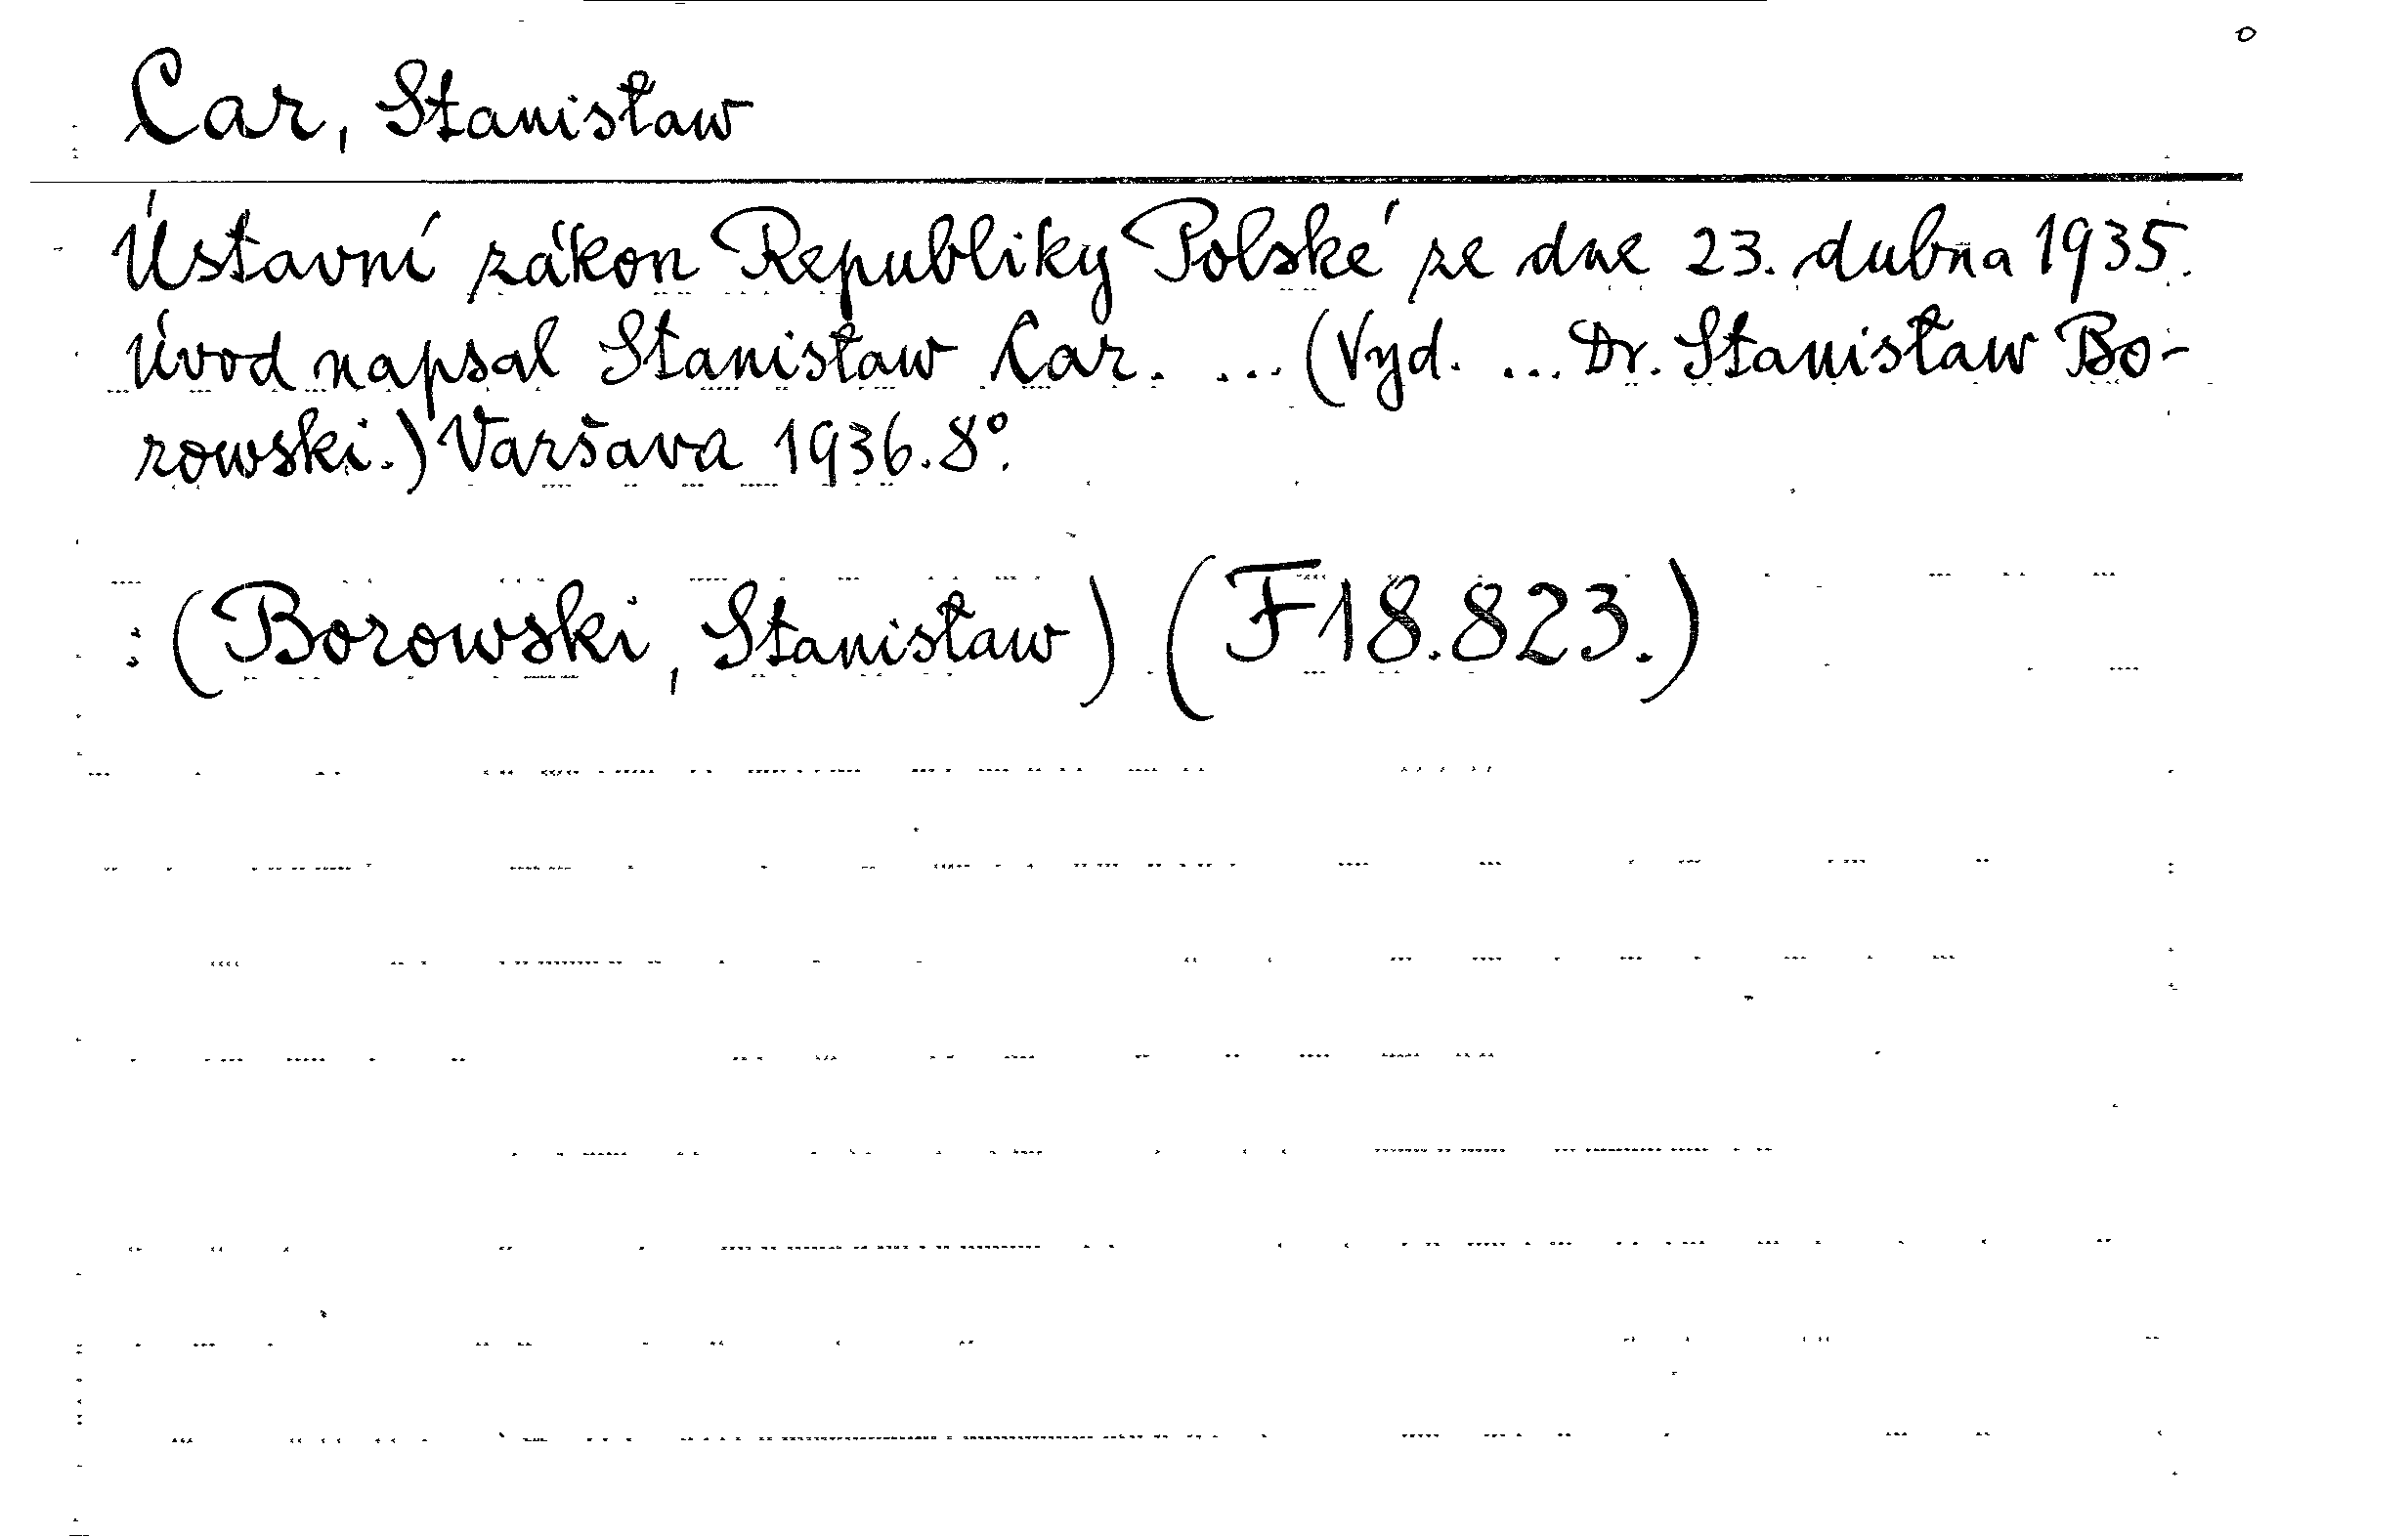 Car, Stanisław
Ústavní zákon Republiky Polské ze dne 23. dubna 1935.
Úvod napsal Stanisław Car. ... (Vyd. ... Dr. Stanisław Bo-
rowski.) Varšava 1936. 8°.
: (Borowski, Stanisław) (F 18.823.)